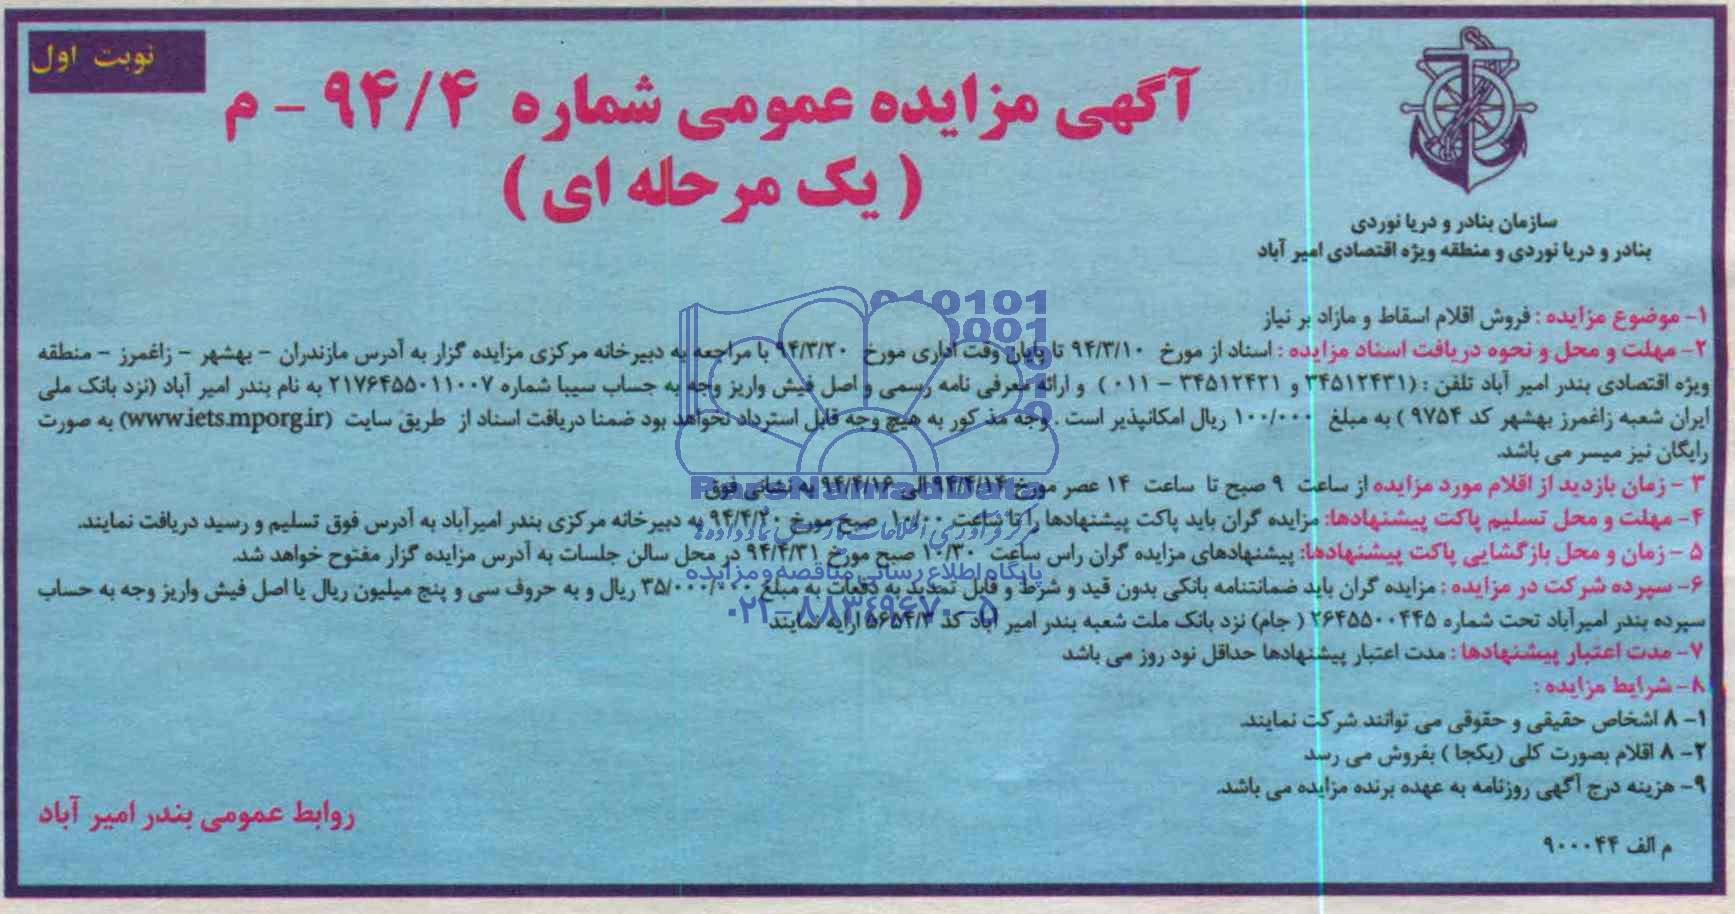 نوبت اول
آگهی مزایده عمومی شماره ۹۴/۴ - م
( یک مرحله ای )
سازمان بنادر و دریا نوردی
بنادر و دریا نوردی و منطقه ویژه اقتصادی امیر آباد
۱- موضوع مزایده : فروش اقلام اسقاط و مازاد بر نیاز
۲- مهلت و محل و نحوه دریافت اسناد مزایده : اسناد از مورخ ۹۴/۳/۱۰ تا پایان وقت اداری مورخ ۹۴/۳/۲۰ با مراجعه به دبیرخانه مرکزی مزایده گزار به آدرس مازندران - بهشهر - زاغمرز - منطقه
ویژه اقتصادی بندر امیر آباد تلفن : (۳۴۵۱۲۴۳۱ و ۳۴۵۱۲۴۲۱ - ۰۱۱ ) و ارائه معرفی نامه رسمی و اصل فیش واریز وجه به جساب سیبا شماره ۲۱۷۶۴۵۵۰۱۱۰۰۷ به نام بندر امیر آباد (نزد بانک ملی
ایران شعبه زاغمرز بهشهر کد ۹۷۵۴ ) به مبلغ ۱۰۰/۰۰۰ ریال امکانپذیر است . وجه مذ کور به هیچ وجه قابل استرداد نخواهد بود ضمنا دریافت اسناد از طریق سایت (www.iets.mporg.ir) به صورت
رایگان نیز میسر می باشد.
۳ - زمان بازدید از اقلام مورد مزایده از ساعت ۹ صبح تا ساعت ۱۴ عصر مورخ ۹۴/۴/۱۴ الی ۹۴/۴/۱۶ به نشانی فوق
۴- مهلت و محل تسلیم پاکت پیشنهادها: مزایده گران باید پاکت پیشنهادها را تا ساعت ۱۰/۰۰ صبح مورخ ۹۴/۴/۲۰ به دبیرخانه مرکزی بندر امیرآباد به آدرس فوق تسلیم و رسید دریافت نمایند.
۵ - زمان و محل بازگشایی پاکت پیشنهادها: پیشنهادهای مزایده گران راس ساعت ۱۰/۳۰ صبح مورخ ۹۴/۴/۳۱ در محل سالن جلسات به آدرس مزایده گزار مفتوح خواهد شد.
۶- سپرده شرکت در مزایده : مزایده گران باید ضمانتنامه بانکی بدون قید و شرط و قابل تمدید به دفعات به مبلغ ۳۵/۰۰۰/۰۰۰ ریال و به حروف سی و پنج میلیون ریال یا اصل فیش واریز وجه به حساب
سپرده بندر امیرآباد تحت شماره ۲۶۴۵۵۰۰۴۴۵ ( جام) نزد بانک ملت شعبه بندر امیر آباد کد ۵۶۵۴/۳ ارایه نمایند
۷- مدت اعتبار پیشنهادها : مدت اعتبار پیشنهادها حداقل نود روز می باشد
۸- شرایط مزایده :
۱- ۸ اشخاص حقیقی و حقوقی می توانند شرکت نمایند.
۲- ۸ اقلام بصورت کلی (یکجا ) بفروش می رسد
۹- هزینه درج آگهی روزنامه به عهده برنده مزایده می باشد.
روابط عمومی بندر امیر آباد
م الف ۹۰۰۰۴۴
ParsNamadData
پایگاه اطلاع رسانی مناقصه و مزایده
۰۲۱-۸۸۳۴۹۶۷۰-۵